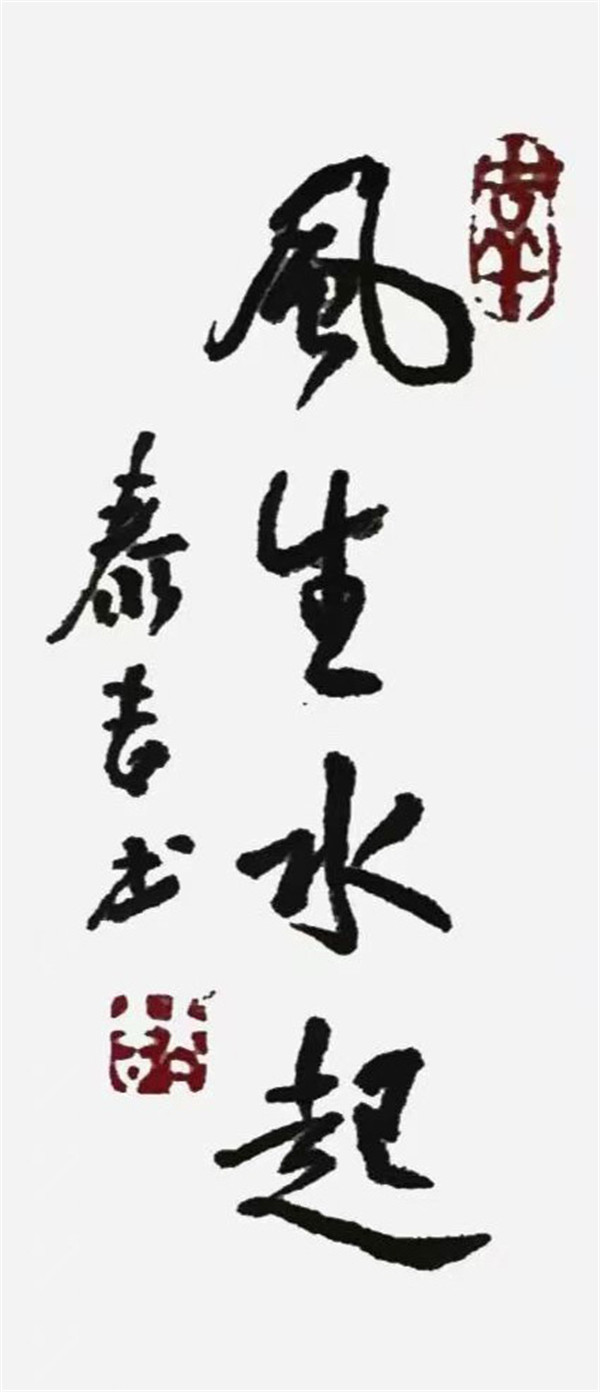 風生水起
泰吉书